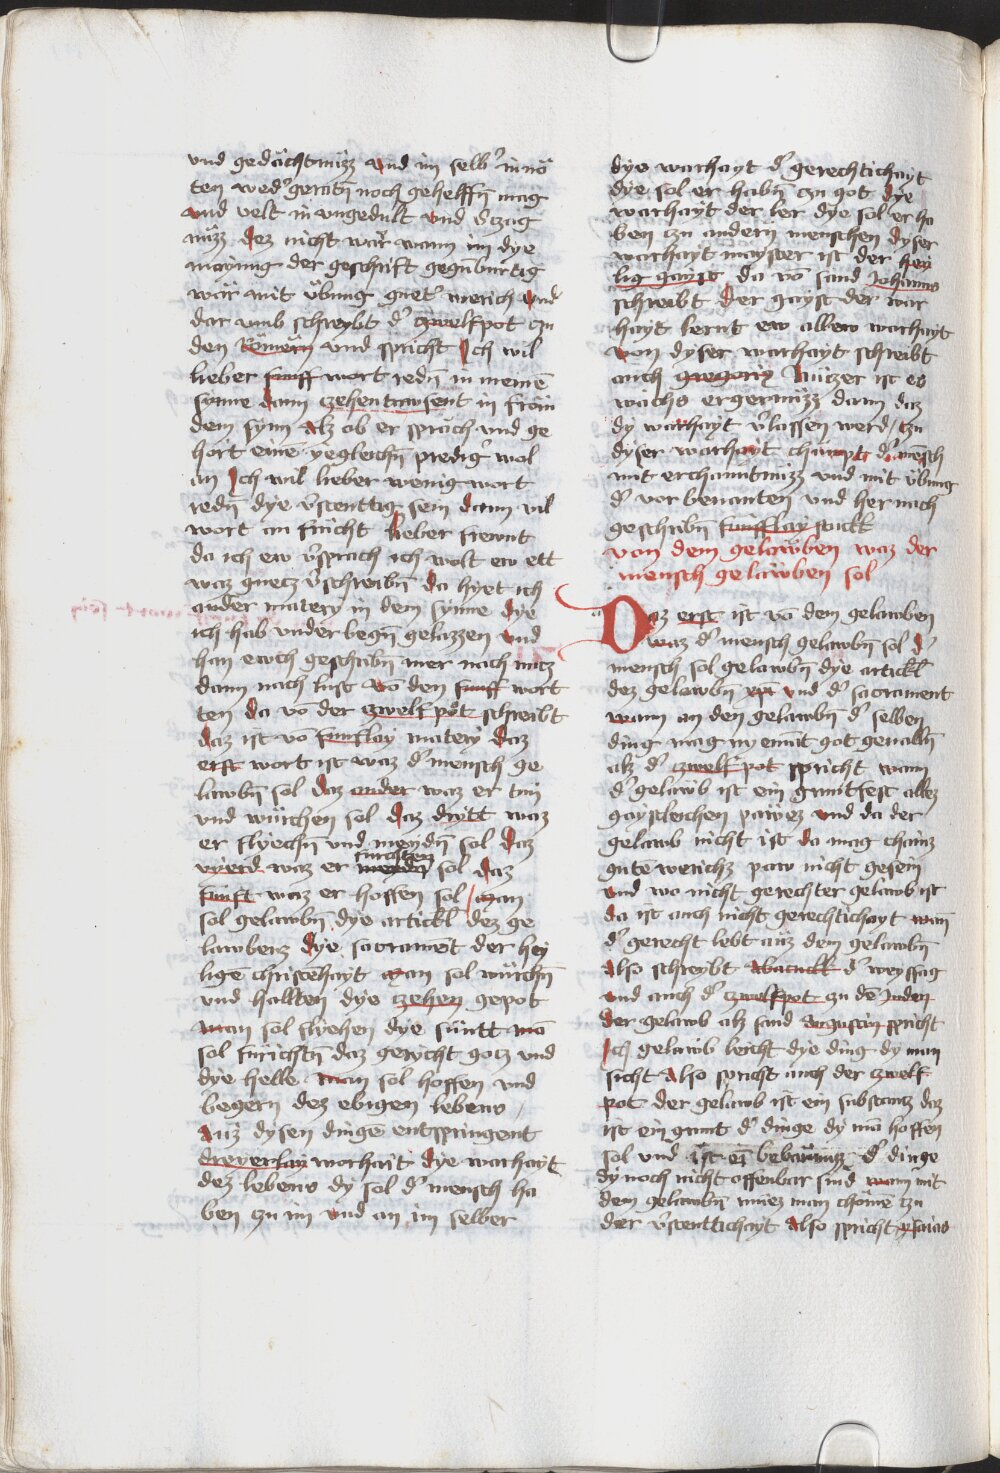 vnd gedächtnüzz vnd im selb' in nö
ten wed' geratn̄ noch gehelffn̄ mag
vnd velt in vngedult vnd v'tzag
nüzz dez nicht wär wann im dye
maynung der geschrift gegēnburtig
wär mit übung guet' werich vnd
dar vmb schreybt d' czwelfpot czu
den Römern vnd spricht Ich wil
lieber fumff wort redn̄ in meinē
synne dann czehentawsent in fröm
dem synn Alz ob er spräch vnd ge
hört einē yegleichn̄ predig' wol
an Ich wil lieber wenig wort
redn̄ dye v'stenttig sein dann vil
wort an frücht lieber frewnt
da ich ew v'sprach ich wolt ew ett
waz guetz v'schreibn̄ da hyet ich
ander matery in dem synne dye
ich hab vnder begn̄ gelazzen vnd
han ewch geschribn̄ mer nach nutz
dann nach lust vō den fumff wort
ten da vō der czwelfpot schreibt
daz ist vō fumflay matery daz
erst wort ist waz d' mensch ge
lawbn̄ sol daz ander waz er tun
vnd würchen sol daz dritt waz
er flyechn̄ vnd meydn̄ sol daz
vierd waz er fürchten sol daz
fumft waz er hoffen sol man
sol gelawbn̄ dye artickl dez ge
lawbenz dye sacramēt der hey
ligē christehayt man sol würchn̄
vnd hallten dye czehen gepot
man sol flyehen dye süntt mā
sol fürichtn̄ daz gericht gotz vnd
dye helle man sol hoffen vnd
begern dez ebigen lebens
Auz dysen dingē entspringent
dreyerlay warhayt dye warhayt
dez lebens dy sol d' mensch ha
ben czu im vnd an im selber
dye warhayt d' gerechtichayt
dye sol er habn̄ czu got dye
warhayt der ler dye sol er ha
ben czu andern menschen dyser
warhayt mayster ist der hey
lig gayst da vō sand Johannes
schreibt der gayst der war
hayt lernt ew allew warhayt
von dyser warhayt schreibt
auch gregorii Nützer ist es
wachs ergernüzz dann daz
dy warhayt v'lassen werd / czu
dyser warhayt chümpt d' mēsch
mit erchantnüzz vnd mit übung
d' vor benanten vnd her nach
geschribn̄ fumfflay stuckk
von dem gelawben waz der
mensch gelawben sol
Daz erst ist vō dem gelawben
waz d' mensch gelawbn̄ sol d'
mensch sol gelawbn̄ dye artickl
dez gelawbn̄ xp̄i vnd d' sacrament
wann an den gelawbn̄ d' selben
ding mag nyemāt got geualln̄
alz d' czwelfpot spricht wann
d' gelawb ist ein gruntfest allez
gaystleichen pawez vnd da der
gelawb nicht ist da mag chainz
gutē werichz paw nicht gesein
vnd wo nicht gerechter gelawb ist
da ist auch nicht gerechtichayt wan̄
d' gerecht lebt auz dem gelawbn̄
Also schreybt Abacukk d' weyssag
vnd auch d' czwelfpot zu dē Juden
der gelawb alz sand Augustin spricht
Ich gelawb leicht dye ding dy man
sicht Also spricht auch der czwelf
pot der gelawb ist ein substantz daz
ist ein grunt d' dinge dy mā hoffen
sol vnd ist ei bebärung d' dinge
dy noch nicht offenbar sind wann mit
dem gelawbn̄ muez man chömē czu
der v'stenttichayt Also spricht ysaias